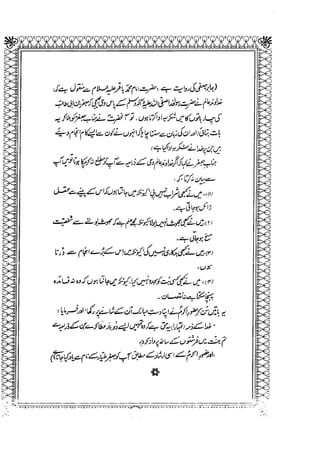 (جابر جعفی کی روایت ہے، حضرت امام محمد باقر علیہ السلام سے منقول ہے کہ:
خداوند عالم نے حضرت رسولخدا صلی اللہ علیہ وآلہ وسلم کے پاس وحی بھیجی کہ جعفر ابن ابی طالب
کی چار باتوں کا میں شکریہ ادا کرتا ہوں۔ تو آنحضرت نے جناب جعفر کو بلا کر یہ
بات بتائی اور ان کی زبان سے سننا چاہا کہ انہوں نے کون سے ایسے کام انجام دیئے
ہیں جن پر خدا نے شکریہ ادا کیا ہے)
جناب جعفر نے کہا کہ اگر خداوند عالم وحی کے ذریعہ سے آپ کو مطلع نہ کر چکا ہوتا تو میں آپ
سے بیان نہ کرتا کہ:
(۱)۔ میں نے کبھی شراب نہیں پی کیونکہ میں جانتا ہوں کہ اس کے پینے سے عقل
زائل ہو جاتی ہے۔
(۲) میں نے کبھی جھوٹ نہیں بولا کیونکہ مجھے علم ہے کہ جھوٹ بولنے سے شخصیت
مسخ ہو جاتی ہے۔
(۳) میں نے کبھی بدکاری نہیں کی کیونکہ میں اس کے بُرے انجام سے ڈرتا
ہوں۔
(۴)۔ میں نے کبھی کسی بت کو سجدہ نہیں کیا، کیونکہ میں جانتا ہوں کہ وہ نہ فائدہ
پہنچا سکتا ہے نہ نقصان۔
یہ باتیں سن کر حضور اکرم نے اپنا دست مبارک ان کے شانے پر رکھا اور فرمایا:
"خدا کے ذمہ (تمہارا یہ) حق ہے کہ وہ تمہیں ایسے دو پر عطا کرے جن کے ذریعہ سے
تم جنت میں فرشتوں کے ساتھ پرواز کرو)
(اور حضور اکرم کے اسی ارشاد کے مطابق آپ کو جعفر طیار کے نام سے یاد کیا جاتا ہے)